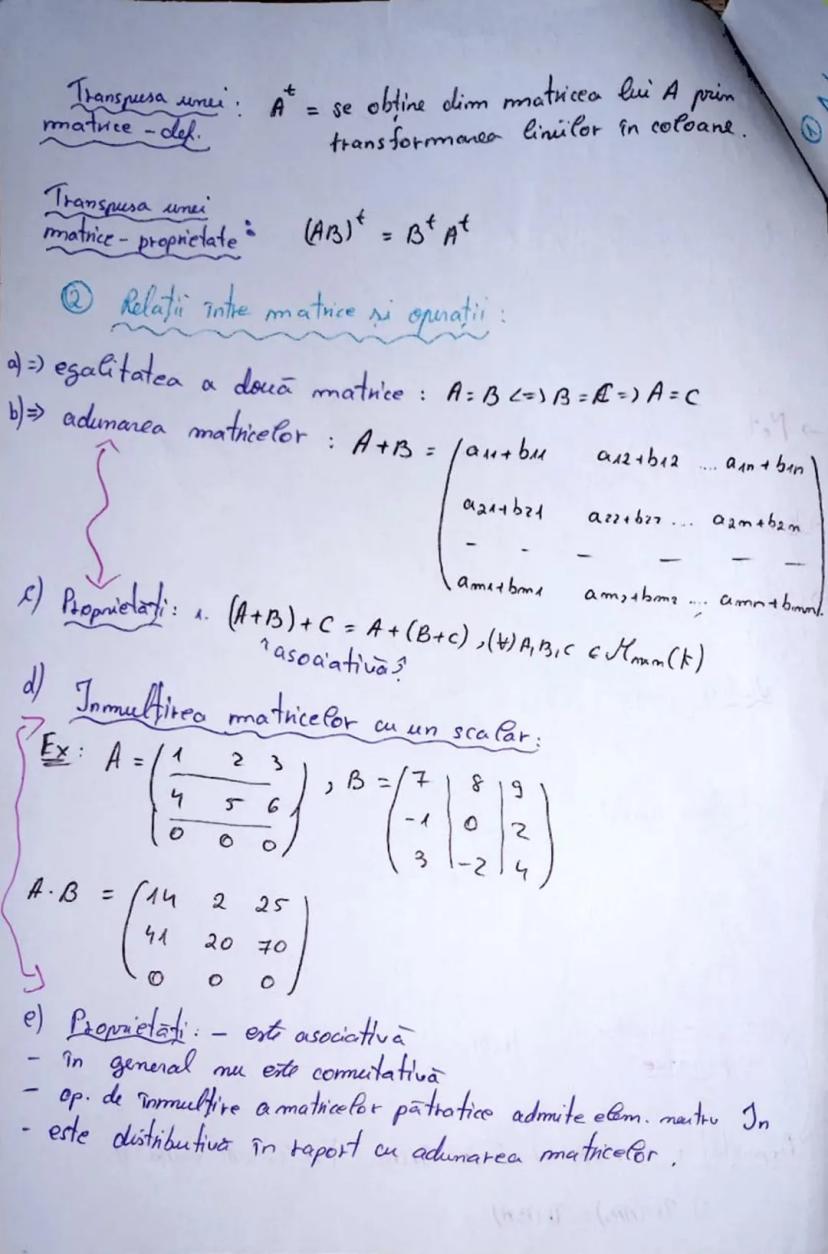 Transpusa unei matrice - def. : Aᵗ = se obține din matricea lui A prin
transformarea liniilor în coloane.
Transpusa unei
matrice - proprietate : (AB)ᵗ = Bᵗ Aᵗ
② Relații între matrice și operații :
a) => egalitatea a două matrice : A = B <=> B = C => A = C
b) => adunarea matricelor : A+B = ( a11+b11 a12+b12 ... a1n+b1n
a21+b21 a22+b22 ... a2n+b2n
- - - - - -
am1+bm1 am2+bm2 ... amn+bmn )
c) Proprietăți : 1. (A+B)+C = A+(B+C), (∀) A,B,C ∈ Mmn(K)
"asociativă"
d) Inmulțirea matricelor cu un scalar :
Ex : A = ( 1 2 3
4 5 6
0 0 0 ) , B = ( 7 8 9
-1 0 2
3 -2 4 )
A·B = ( 14 2 25
41 20 70
0 0 0 )
e) Proprietăți : - este asociativă
- în general nu este comutativă
- op. de înmulțire a matricelor pătratice admite elem. neutru In
- este distributivă în raport cu adunarea matricelor.